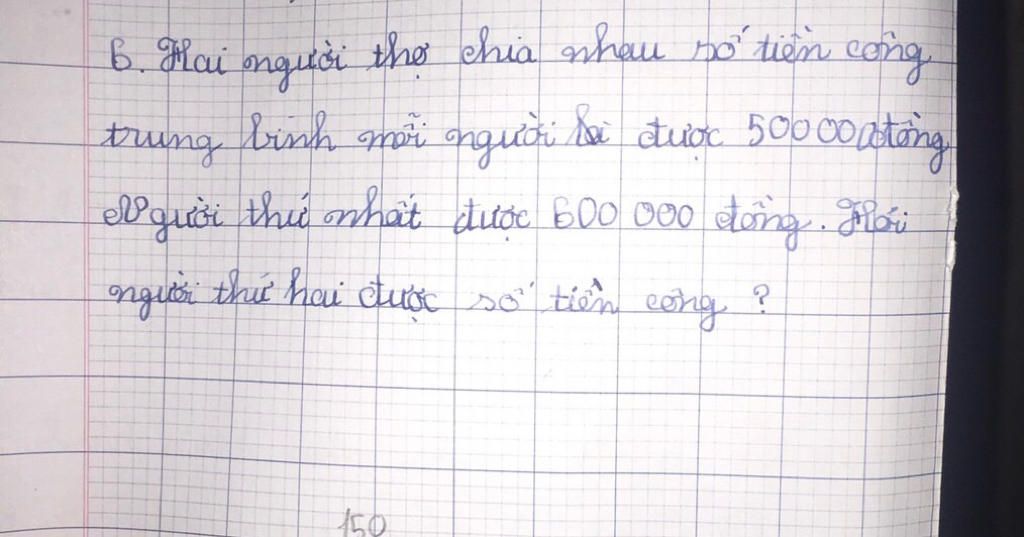 6. Hai người thợ chia nhau số tiền công
trung bình mỗi người được 500 000 đồng
Người thứ nhất được 600 000 đồng. Hỏi
người thứ hai được số tiền công ?
150